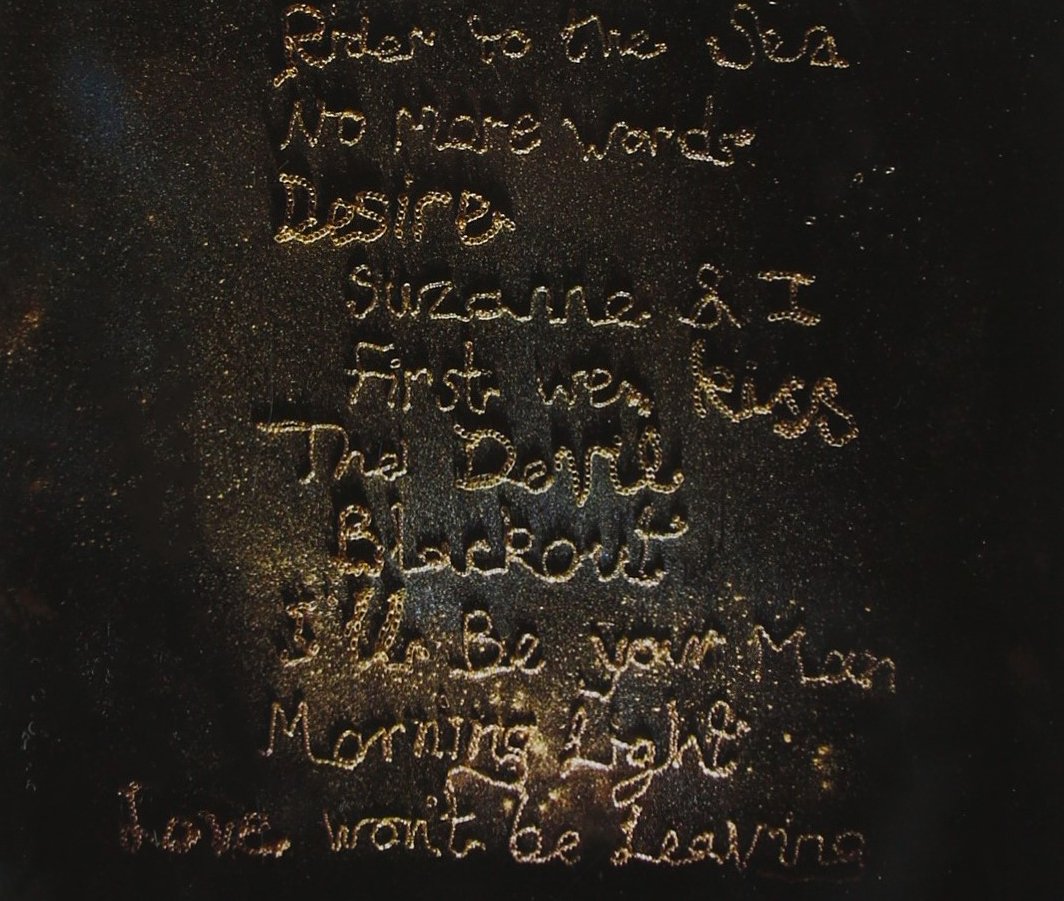 Rider to the Sea
No more words
Desire
Suzanne & I
First we kiss
The Devil
Blackout
I'll Be your Man
Morning Light
Love won't be Leaving